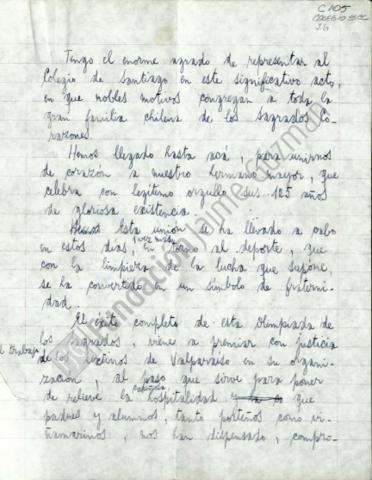 C 105
COLEGIO SS.CC
J.G
Tengo el enorme agrado de representar al
Colegio de Santiago en este significativo acto,
en que nobles motivos congregan a toda la
gran familia chilena de los Sagrados Co-
razones.
Hemos llegado hasta acá, para unirnos
de corazón a nuestro hermano mayor, que
celebra con legítimo orgullo sus 125 años
de gloriosa existencia.
Esta unión se ha llevado a cabo
en estos días, vez más en torno al deporte, que
con la limpieza de la lucha que supone
se ha convertido en un símbolo de fraterni-
dad.
El éxito completo de esta Olimpiada de
los Sagrados, viene a premiar con justicia
el trabajo
de los de Valparaíso en su organi-
zación, al paso que sirve para poner
de relieve la hospitalidad que
padres y alumnos, tanto porteños como vi-
ñamarinos, nos han dispensado, compro-
Fundación Jaime Guzmán